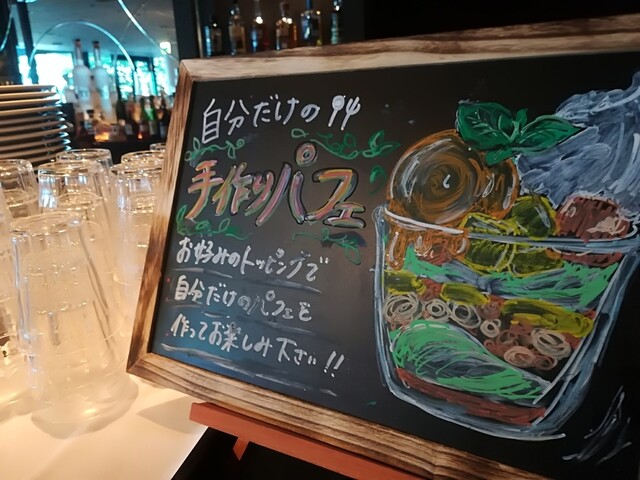 自分だけの
手作りパフェ
お好みのトッピングで
自分だけのパフェを
作ってお楽しみ下さい!!